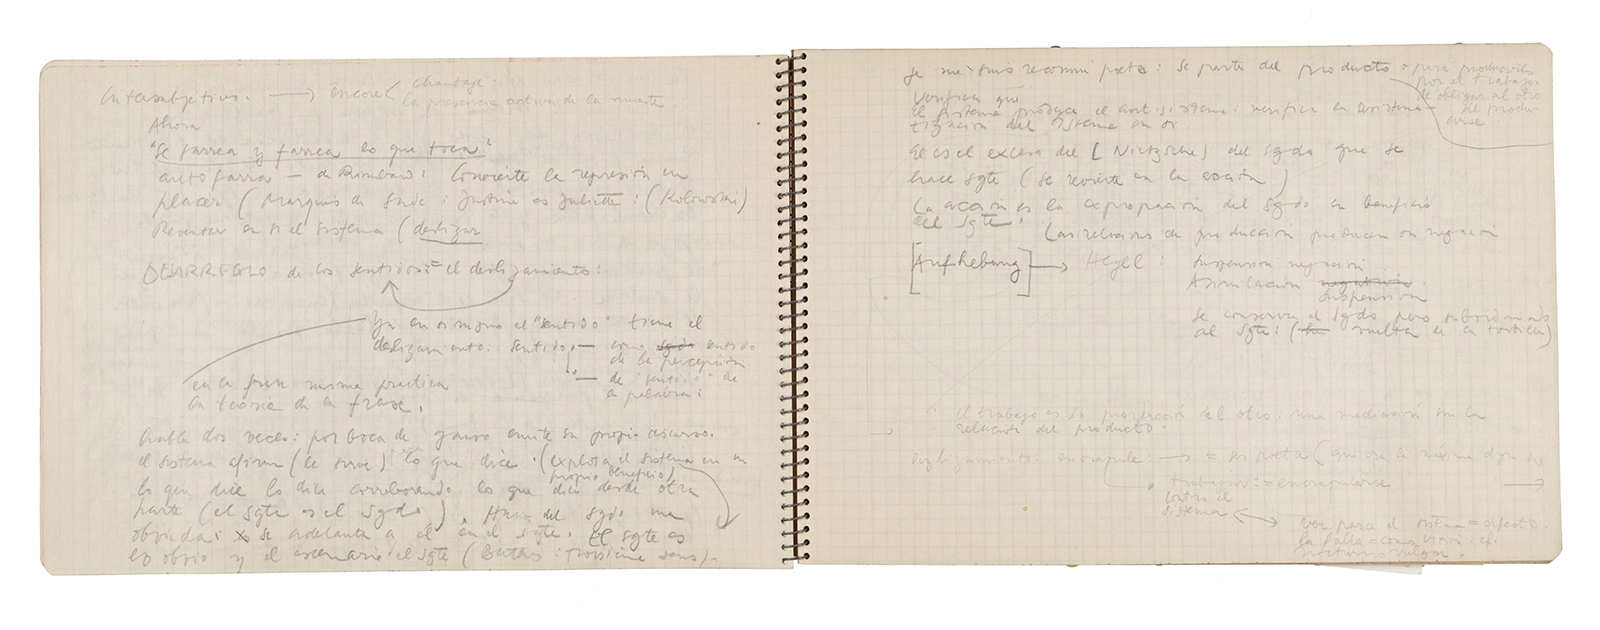 Intersubjetivo. → encore ( Chantage
la presencia activa de la muerte
Ahora
"Se farrea y farrea lo que toca"
autofarra — de Rimbaud: Convierte la represión en
placer (Marqués de Sade: Justine es Juliette: (Kolowski)
Reventar en si el sistema (deslizar
DESARREGLO de los sentidos = el deslizamiento:
Ya en si mismo el "sentido" tiene el
deslizamiento: sentido — como sgdo sentido
de la percepción
— de "sentido" de
la palabra:
en la frase misma practica
la teoría de la frase.
habla dos veces: por boca de emite su propio discurso.
el sistema afirma (le sirve) lo que dice. (explota el sistema en su
propio beneficio)
lo que dice lo dice corroborando lo que dice desde otra
parte (el sgte es el sgdo). Hace del sgdo una
se adelanta a él en el sgte. El sgte es
lo obvio y el escenario el sgte (: troisième sens).
je me suis reconnu poete: Se parte del producto = para producirlo
por el trabajo
de obligar al otro
de produ-
cirse
Verifica que
el sistema produce el anti-sistema: verifica la sistema-
tización del sistema en si.
El es el exceso del [Nietzsche] del sgdo que se
hace sgte (se revierte en la acción)
La acción es la expropiación del sgdo en beneficio
del sgte.
Las relaciones de producción producen su negación
[Aufhebung] → Hegel: Suspensión negación
Asimilación negación
suspensión
se conserva el sgdo pero subordinado
al sgte: (la vuelta de la tortilla)
el trabajo es la proyección del otro: una mediación en la
relación del producto.
deslizamiento: encrapule: → = es poeta (
trabajar: = encrapularse
contra el
sistema ↔ para el sistema = defecto.
la falla = como